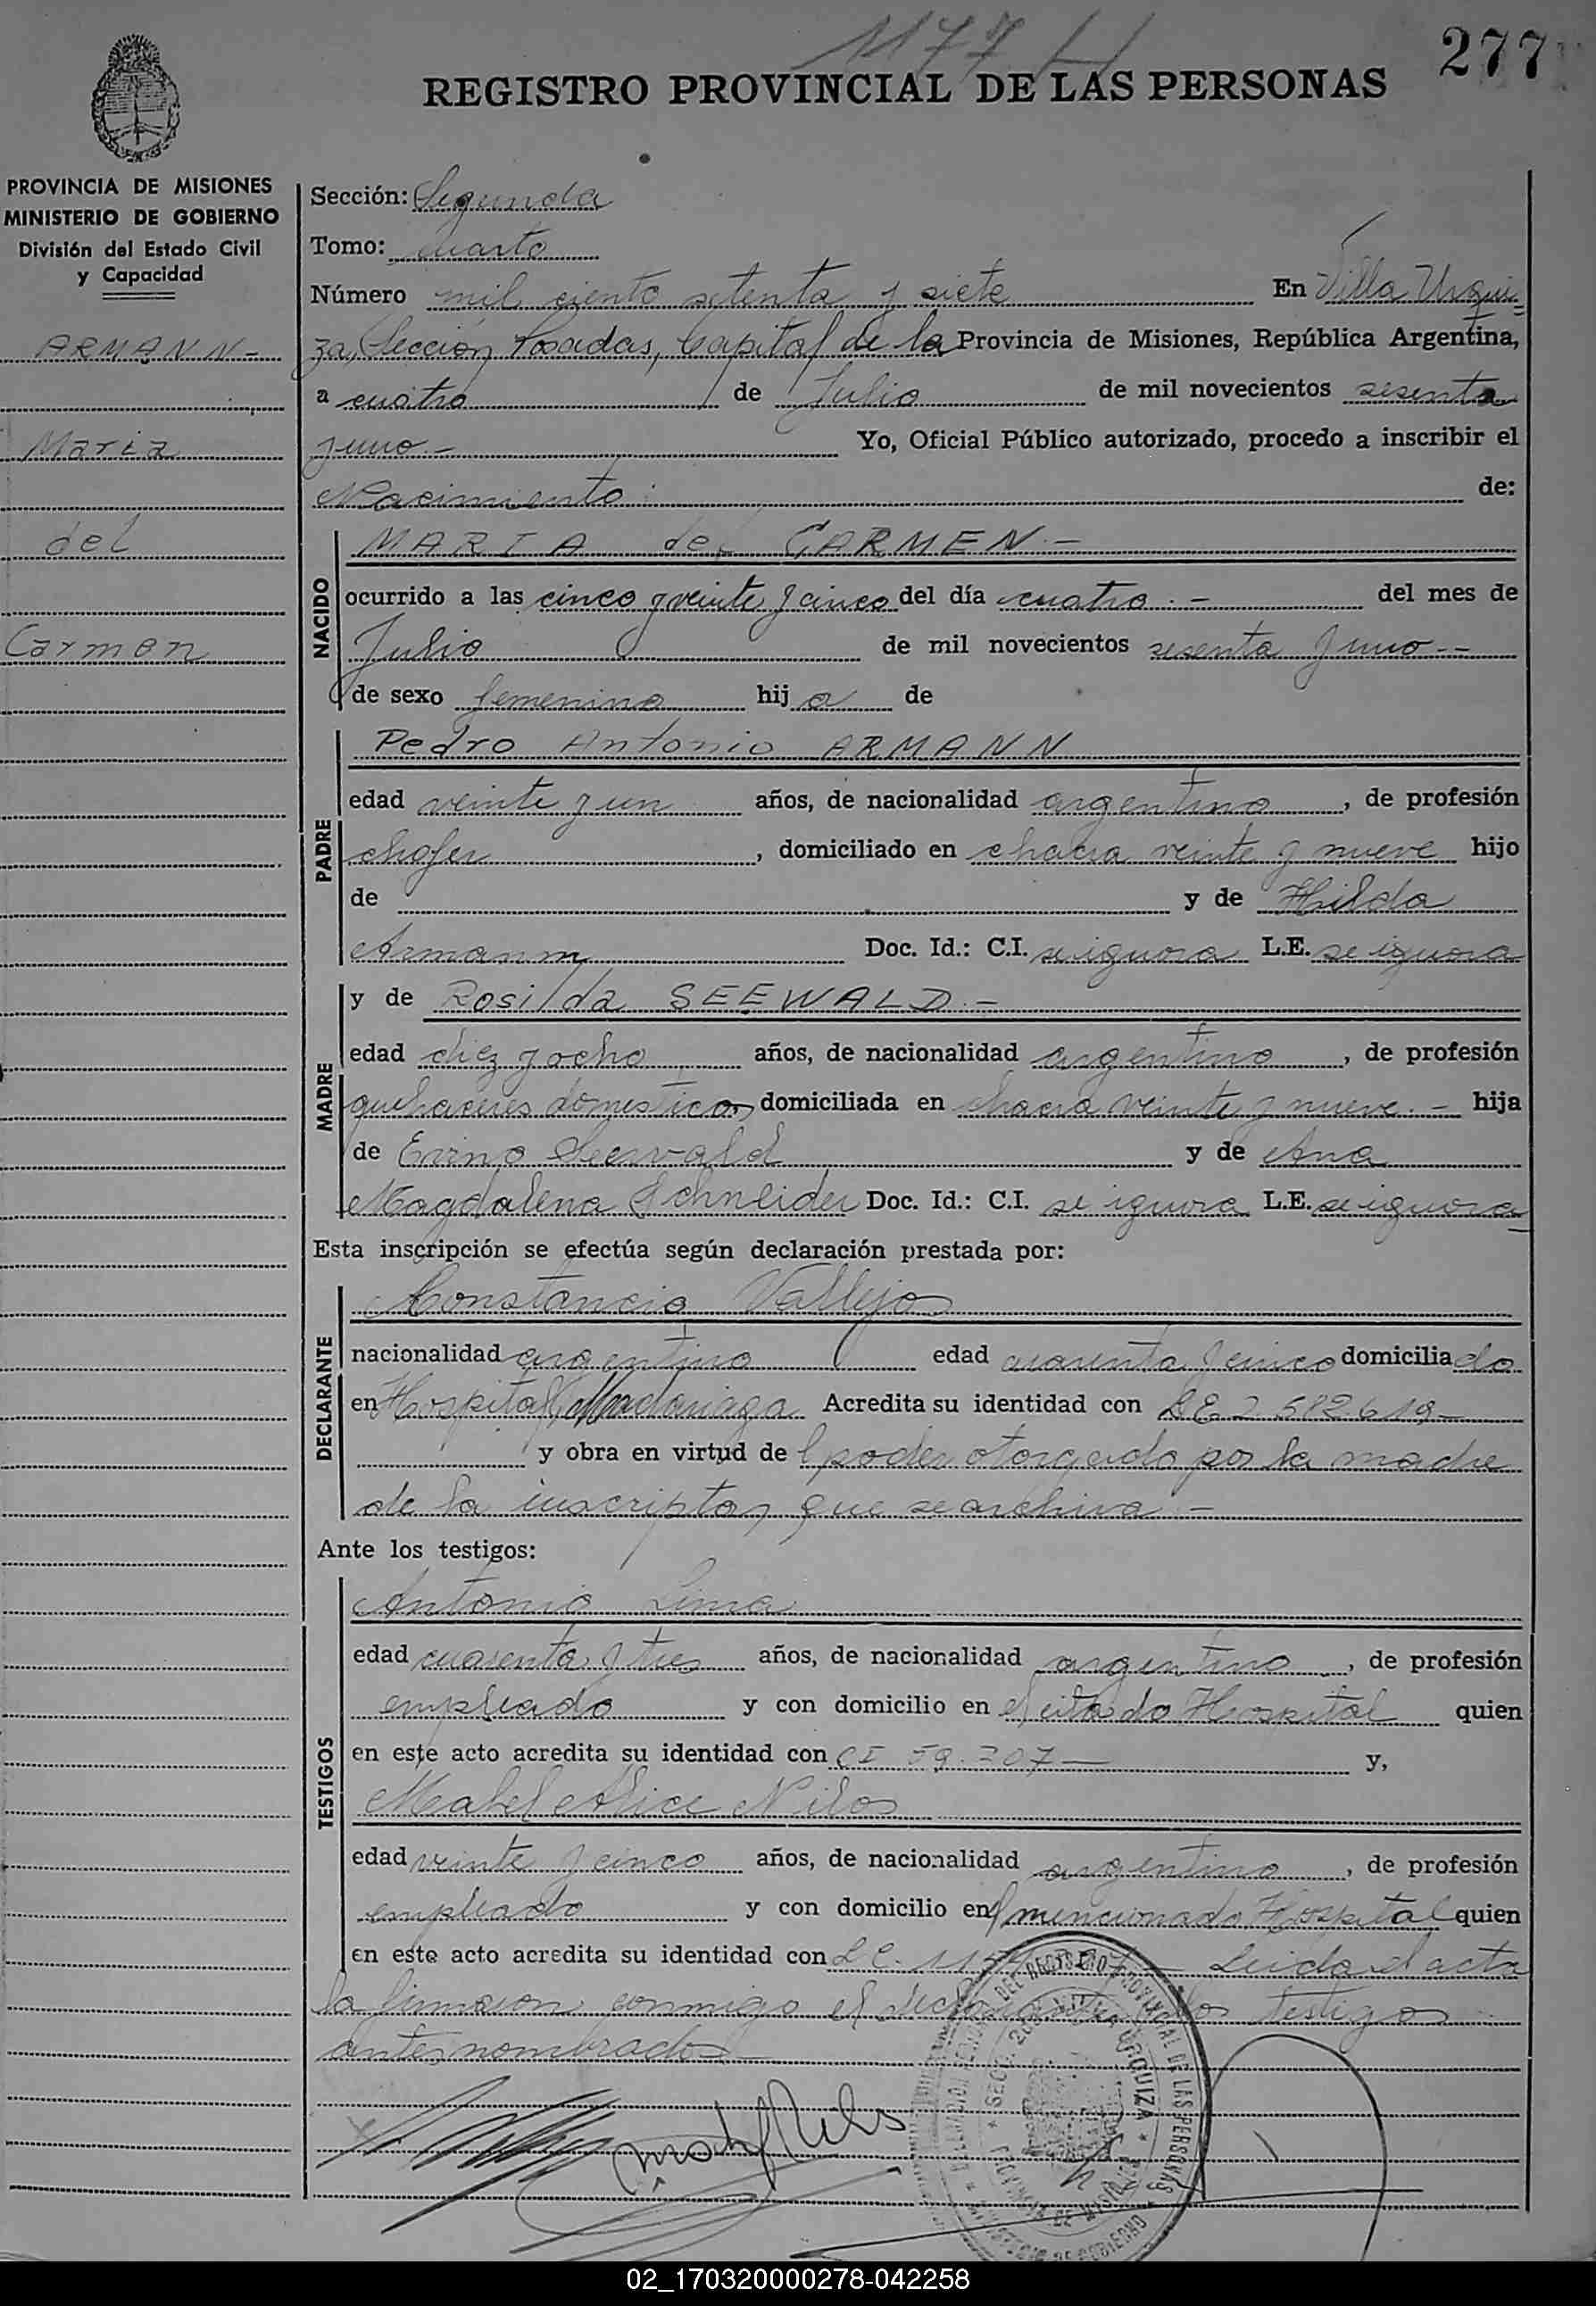 1177 H
277
REGISTRO PROVINCIAL DE LAS PERSONAS
PROVINCIA DE MISIONES
MINISTERIO DE GOBIERNO
División del Estado Civil
y Capacidad
ARMANN -
Maria
del
Carmen
Sección: Segunda
Tomo: cuarto
Número mil ciento setenta y siete En Villa Urqui=
za, Sección Posadas, Capital de la Provincia de Misiones, República Argentina,
a cuatro de Julio de mil novecientos sesenta
y uno.- Yo, Oficial Público autorizado, procedo a inscribir el
Nacimiento de:
NACIDO
MARIA del CARMEN.-
ocurrido a las cinco y veinte y cinco del día cuatro.- del mes de
Julio de mil novecientos sesenta y uno.--
de sexo femenino hija de
PADRE
Pedro Antonio ARMANN
edad veinte y un años, de nacionalidad argentina, de profesión
chofer, domiciliado en chacra veinte y nueve hijo
de y de Hilda
Armann Doc. Id.: C.I. se ignora L.E. se ignora
MADRE
y de Rosilda SEEWALD.-
edad diez y ocho años, de nacionalidad argentina, de profesión
quehaceres domesticos, domiciliada en chacra veinte y nueve.- hija
de Erino Seewald y de Ana
Magdalena Schneider Doc. Id.: C.I. se ignora L.E. se ignora
Esta inscripción se efectúa según declaración prestada por:
DECLARANTE
Constancio Vallejos
nacionalidad argentino edad cuarenta y cinco domiciliado
en Hospital Madariaga Acredita su identidad con L.E. 2.582.619-
y obra en virtud del poder otorgado por la madre
de la inscripta, que se archiva.-
Ante los testigos:
TESTIGOS
Antonio Lima
edad cuarenta y tres años, de nacionalidad argentino, de profesión
empleado y con domicilio en el citado Hospital quien
en este acto acredita su identidad con CI 59.307- y,
Mabel Alice Nilos
edad veinte y cinco años, de nacionalidad argentina, de profesión
empleado y con domicilio en el mencionado Hospital quien
en este acto acredita su identidad con L C. Leida el acta
la firmaron conmigo el declarante los testigos
antes nombrados
02_170320000278-042258